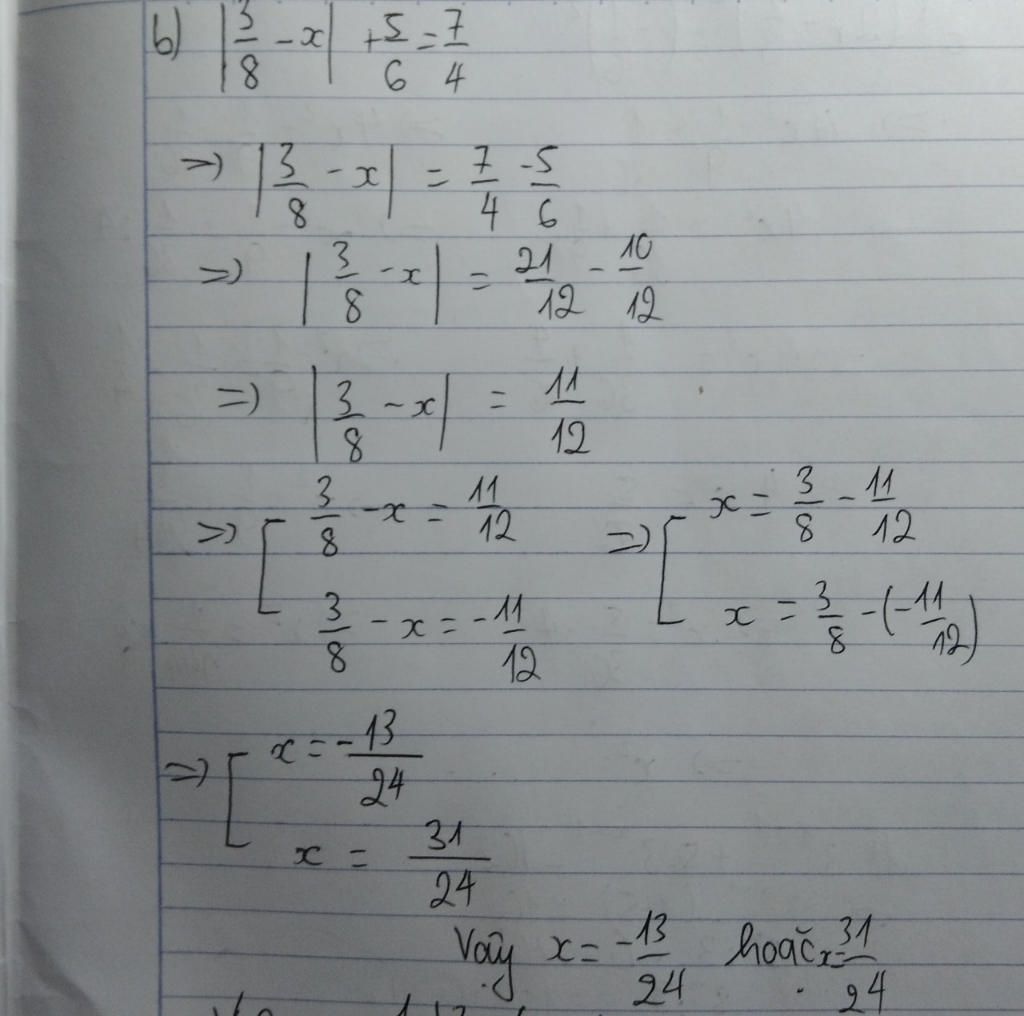 b) |3/8 - x| + 5/6 = 7/4
=> |3/8 - x| = 7/4 - 5/6
=> |3/8 - x| = 21/12 - 10/12
=> |3/8 - x| = 11/12
=> [ 3/8 - x = 11/12 => [ x = 3/8 - 11/12
3/8 - x = -11/12 x = 3/8 - (-11/12)
=> [ x = -13/24
x = 31/24
Vậy x = -13/24 hoặc x = 31/24